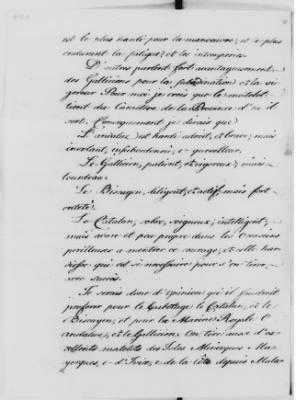 est le plus hardi pour la manœuvre, et le plus
endurant la fatigue, et les intemperies.
D'autres parlent fort avantageusement
des Galliciens pour la subordination et la vi-
gueur. Pour moi, je crois que le matelot
tient du Caractere de la Province d'où il
sort. Consequemment je dirais que
L'andalou, est hardi adroit, et brave; mais
insolent, insubordonné, et querelleur.
Le Gallicien, patient, et vigoureux; mais
lourdeau.
Le Biscayen, diligent, et actif, mais fort
entêté.
Le Catalan, sobre, soigneux, intelligent,
mais avare et peu propre dans les occasions
perilleuses a montrer ce courage, et cette har-
diesse qui est si necessaire pour s'en tirer
avec succès.
Je serais donc d'opinion qu'il faudrait
preferer pour le Cabotage le Catalan, et le
Biscayen, et pour la Marine Royale l'
andalous, et le Gallicien. On tire aussi d'ex-
cellents matelots des Isles Minorques Ma-
yorques, e d'Ivice, e de la côte depuis Mala-